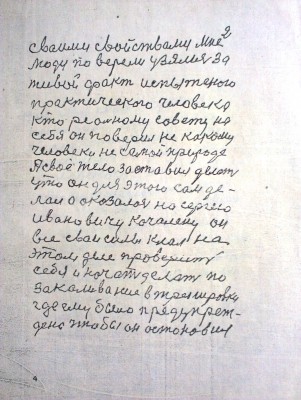 2
своими свойствами мне
люди поверели узялиза
живой факт испытеного
практического человека
кто реальному совету на
себя он поверил не какому
человеку не самой природе
Я своё тело заставил делат
что он для этого сам де-
лал а оказалоя на сергею
ивановичу кочалену он
все сваи силы клал на
этом деле проверит
себя и ночат делат по
закаливание в тренировки
где ему было предупреж-
дено чтобы он остоновил